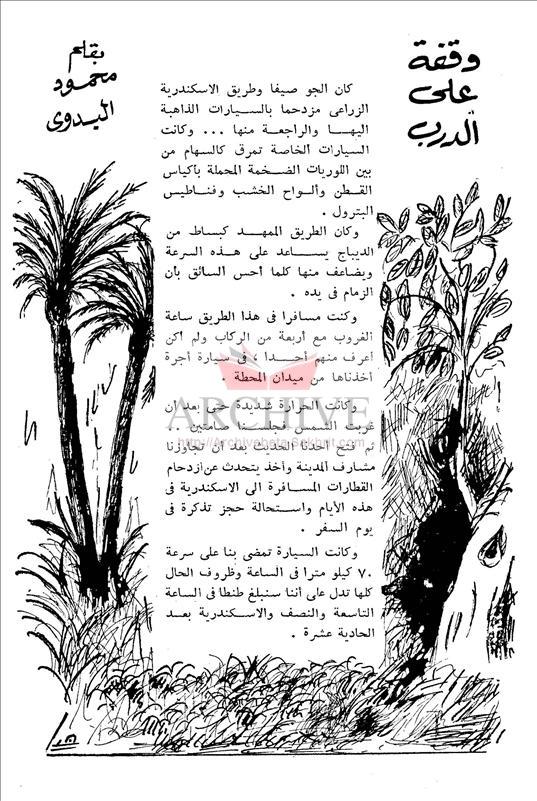 وقفة
على
الدرب
بقلم
محمود
البدوى
كان الجو صيفا وطريق الاسكندرية
الزراعى مزدحما بالسيارات الذاهبة
اليها والراجعة منها ... وكانت
السيارات الخاصة تمرق كالسهام من
بين اللوريات الضخمة المحملة بأكياس
القطن وألواح الخشب وفناطيس
البترول .
وكان الطريق الممهد كبساط من
الديباج يساعد على هذه السرعة
ويضاعف منها كلما أحس السائق بأن
الزمام فى يده .
وكنت مسافرا فى هذا الطريق ساعة
الغروب مع أربعة من الركاب ولم أكن
أعرف منهم أحدا ، فى سيارة أجرة
أخذناها من ميدان المحطة .
وكانت الحرارة شديدة حتى بعد أن
غربت الشمس فجلسنا صامتين ..
ثم فتح أحدنا الحديث بعد أن تجاوزنا
مشارف المدينة وأخذ يتحدث عن ازدحام
القطارات المسافرة الى الاسكندرية فى
هذه الأيام واستحالة حجز تذكرة فى
يوم السفر .
وكانت السيارة تمضى بنا على سرعة
٧٠ كيلو مترا فى الساعة وظروف الحال
كلها تدل على أننا سنبلغ طنطا فى الساعة
التاسعة والنصف والاسكندرية بعد
الحادية عشرة .
ARCHIVE
http://Archivebeta.Sakhrit.com